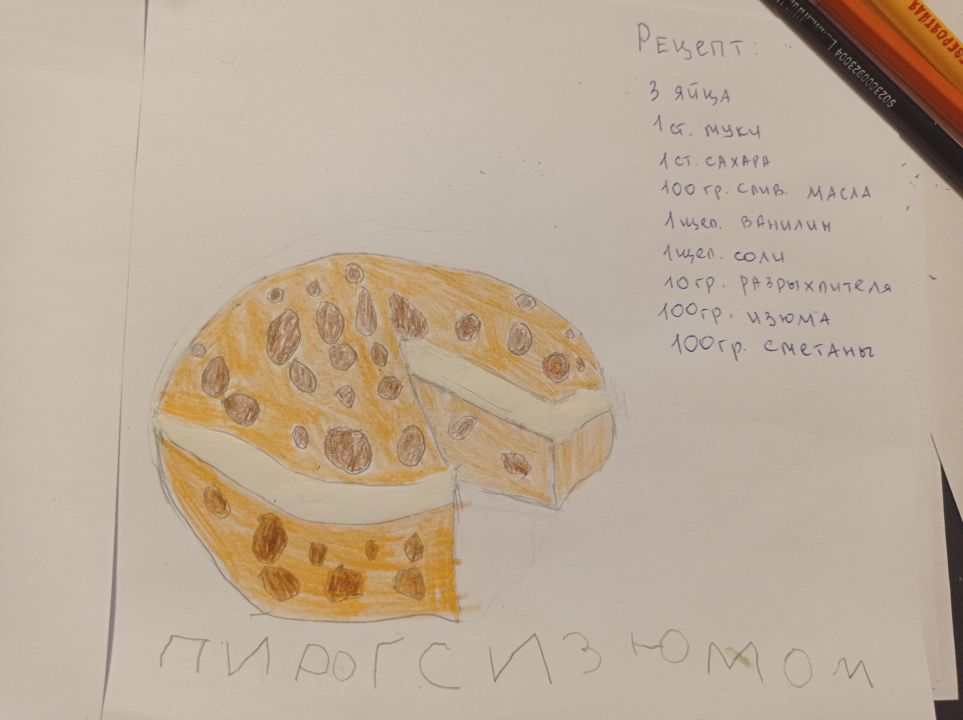 Рецепт:
3 яйца
1 ст. муки
1 ст. сахара
100 гр. слив. масла
1 щеп. ванилин
1 щеп. соли
10 гр. разрыхлителя
100 гр. изюма
100 гр. сметаны
ПИРОГ С ИЗЮМОМ
9023000923004